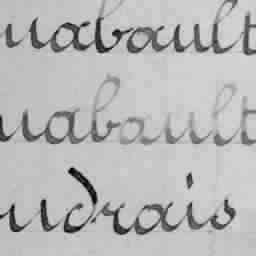 uabault
uabault
udrais